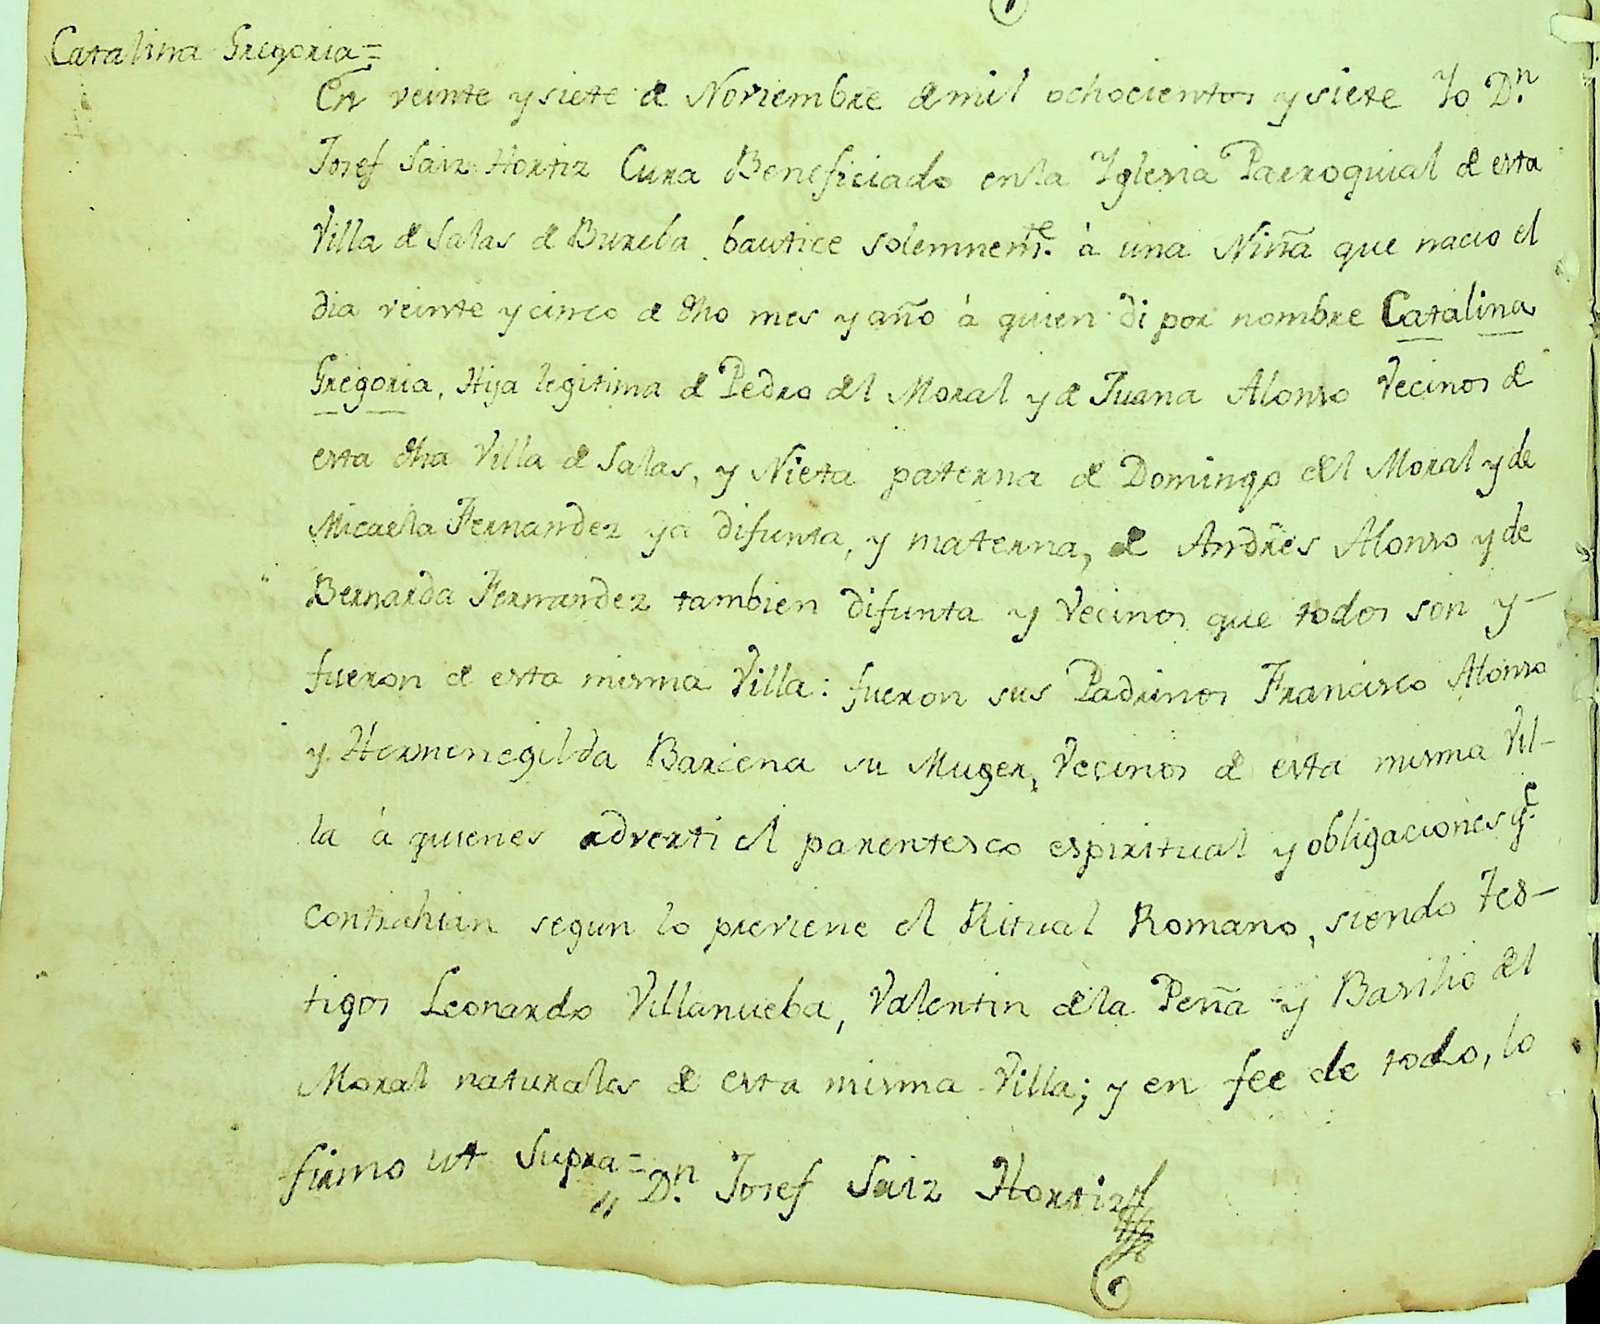 Catalina Gregoria=
En veinte y siete de Noviembre de mil ochocientos y siete Yo Dn.
Josef Saiz Hortiz Cura Beneficiado en la Yglesia Parroquial de esta
Villa de Salas de Bureba bautice solemnemte. à una Niña que nacio el
dia veinte y cinco de dho mes y año à quien di por nombre Catalina
Gregoria, Hija legitima de Pedro del Moral y de Juana Alonso Vecinos de
esta dha Villa de Salas, y Nieta paterna de Domingo del Moral y de
Micaela Fernandez ya difunta, y materna, de Andrès Alonso y de
Bernarda Fernandez tambien difunta y Vecinos que todos son y-
fueron de esta misma Villa: fueron sus Padrinos Francisco Alonso
y Hermenegilda Barcena su Muger, Vecinos de esta misma Vil-
la à quienes adverti el parentesco espiritual y obligaciones qe.
contrahian segun lo previene el Ritual Romano, siendo Tes-
tigos Leonardo Villanueba, Valentin de la Peña y Basilio del
Moral naturales de esta misma Villa; y en fee de todo, lo
firmo ut Supra=
" Dn. Josef Saiz Hortiz